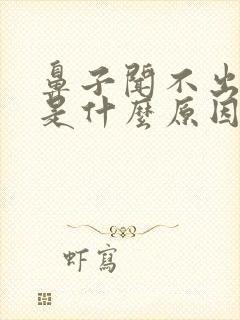 鼻子聞不出
是什麼原因
虾寫